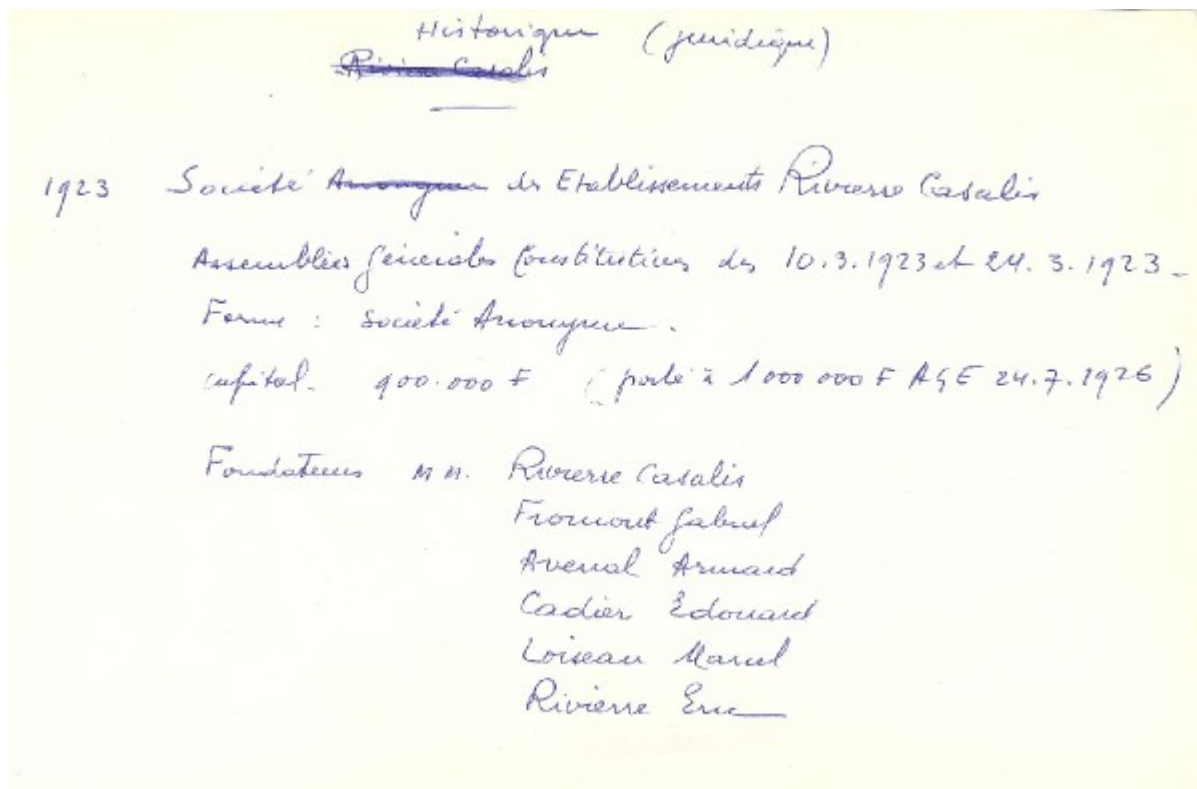 Historique (juridique)
Rivierre Casalis
1923 Société Anonyme des Etablissements Rivierre Casalis
Assemblées générales Constitutives des 10.3.1923 et 24.3.1923 -
Forme : Société Anonyme.
capital. 900.000 F (porté à 1 000 000 F AGE 24.7.1926)
Fondateurs MM. Rivierre Casalis
Fromont Gabriel
Avenal Armand
Cadier Edouard
Loiseau Marcel
Rivierre Eric